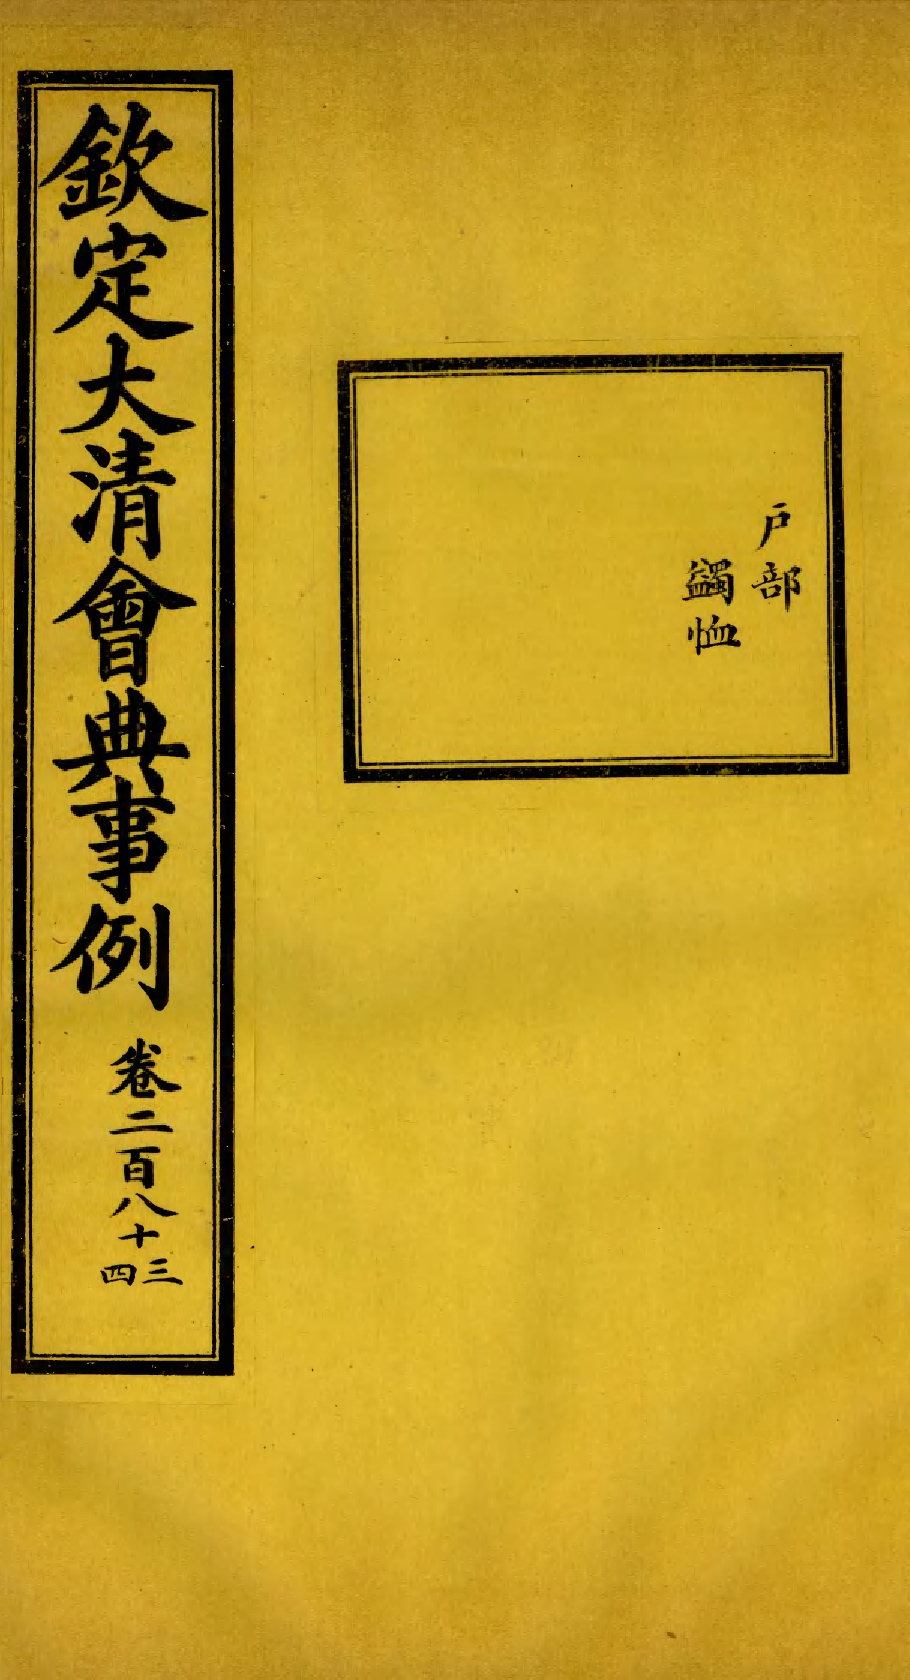 戶部
蠲恤
欽定大清會典事例 卷二百八十三四